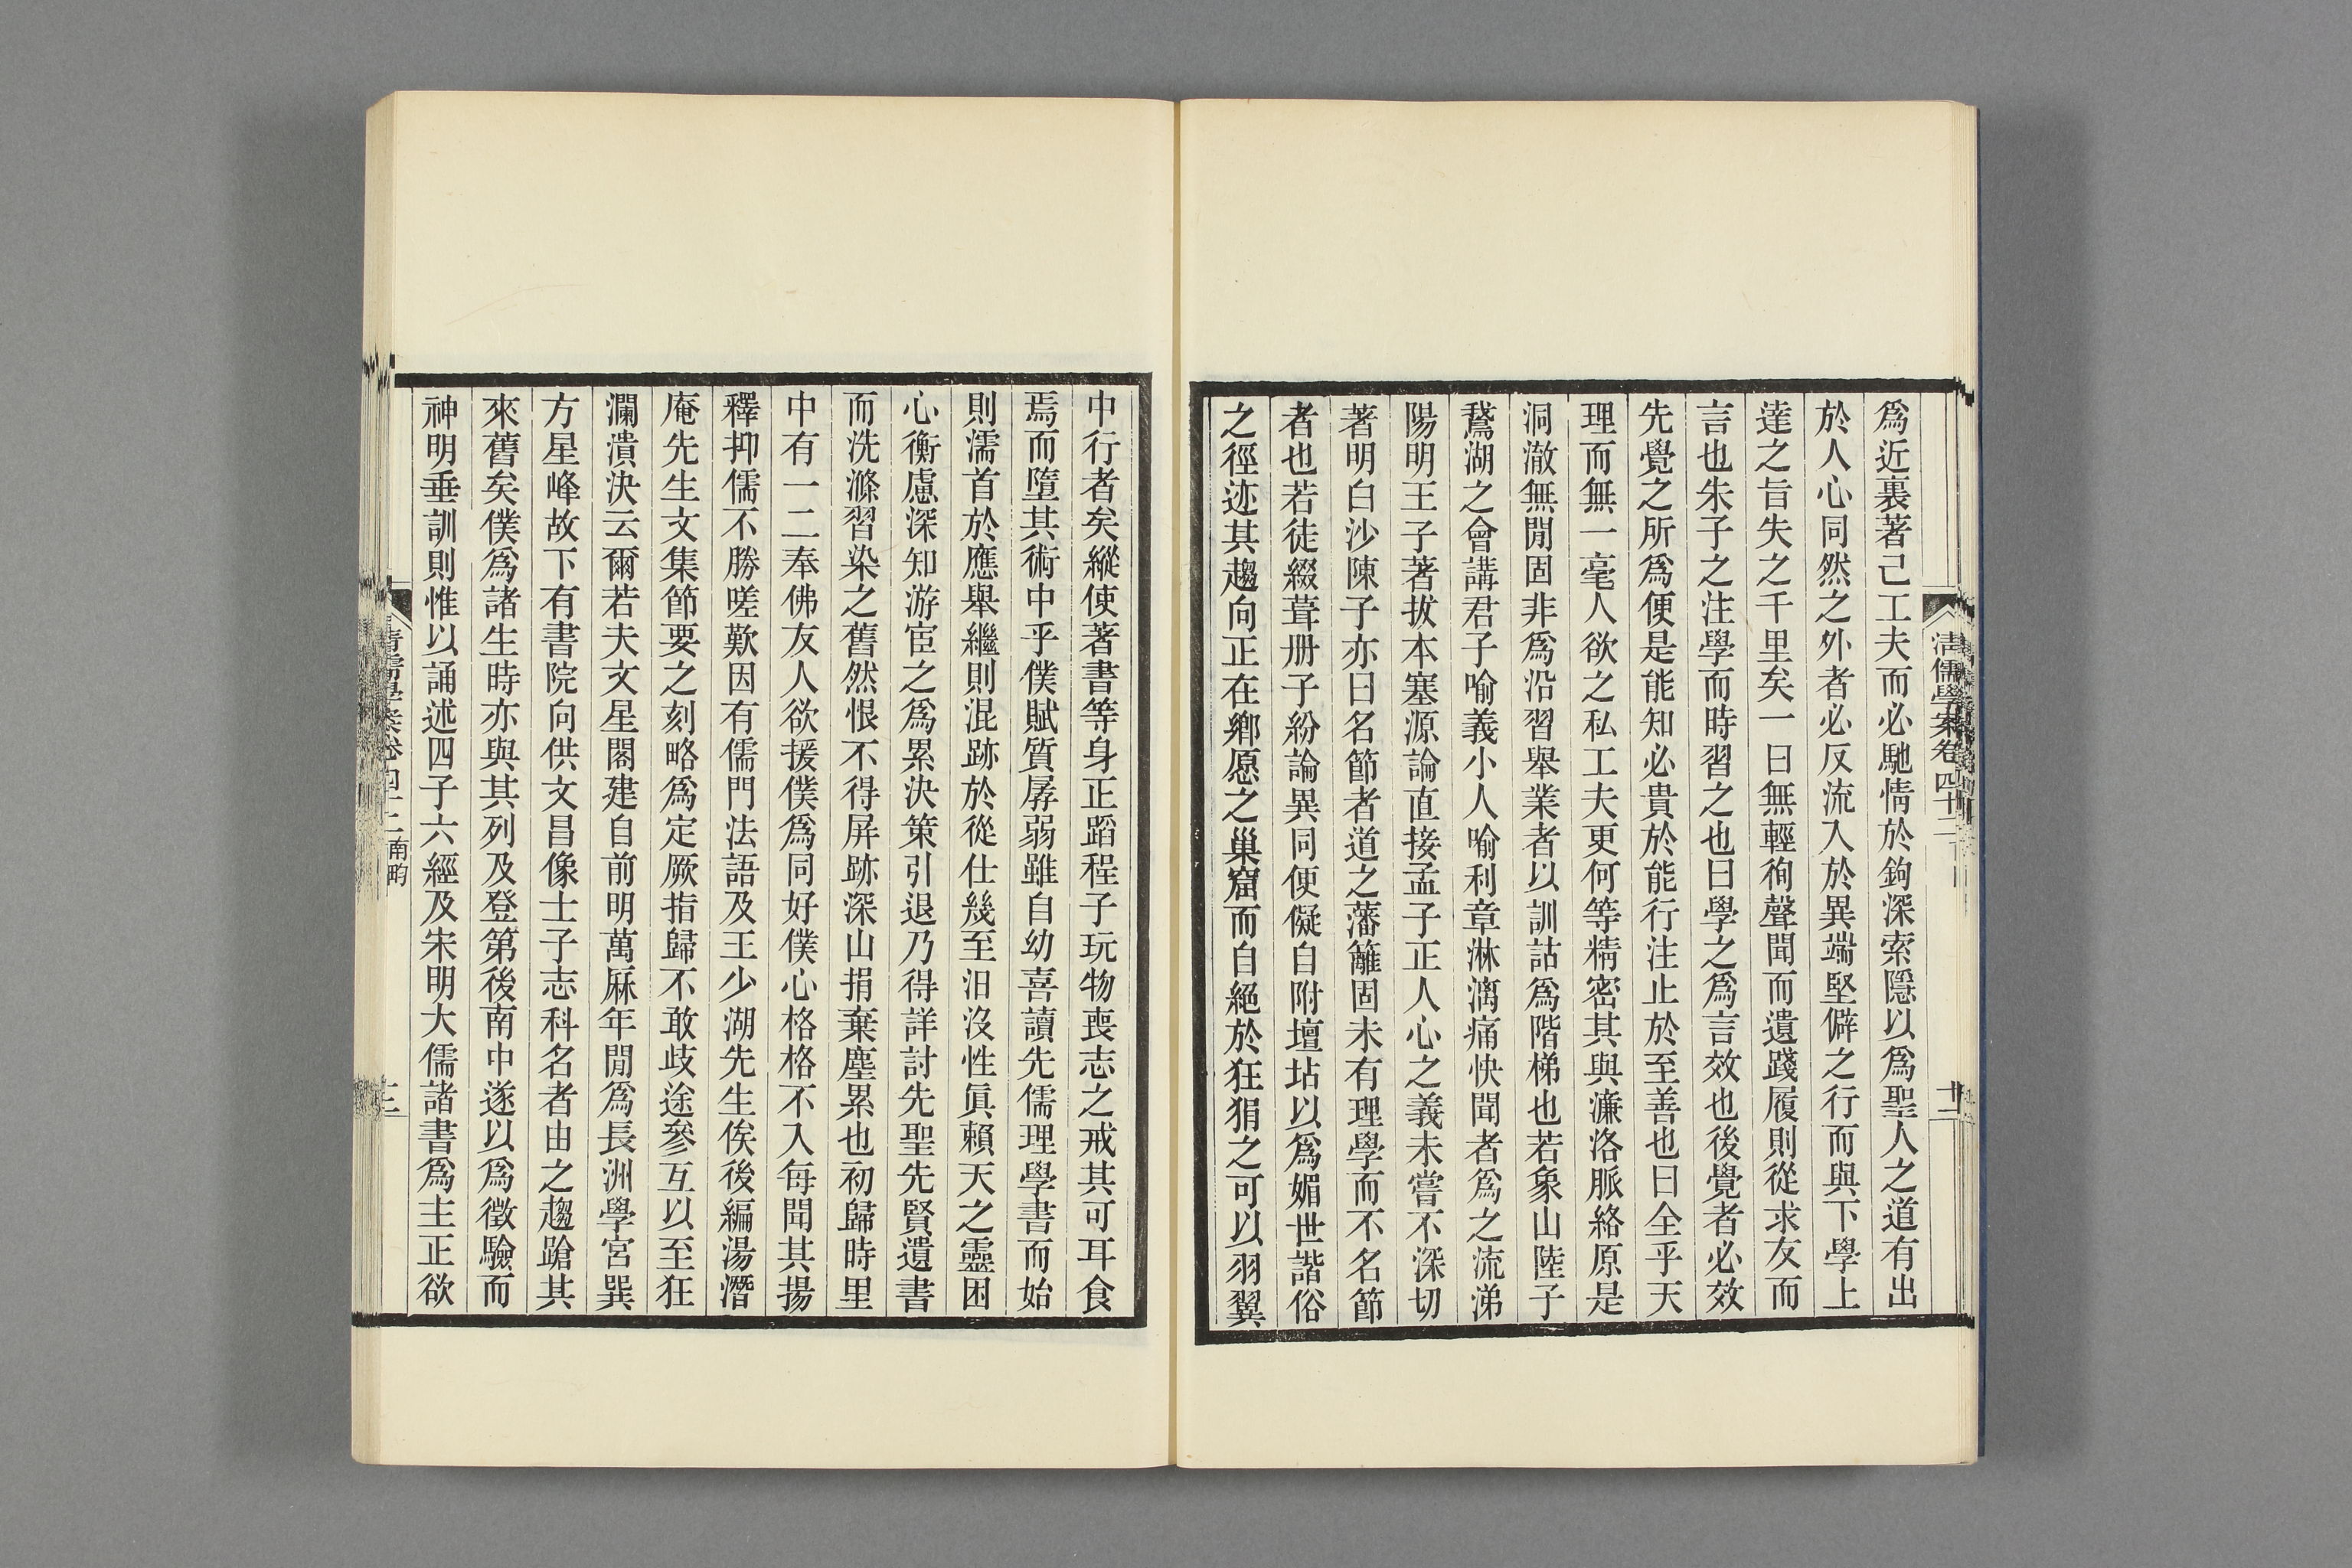 清儒學案卷四十二
十二
爲近裏著己工夫而必馳情於鉤深索隱以爲聖人之道有出
於人心同然之外者必反流入於異端堅僻之行而與下學上
達之旨失之千里矣一曰無輕徇聲聞而遺踐履則從求友而
言也朱子之注學而時習之也曰學之爲言效也後覺者必效
先覺之所爲便是能知必貴於能行注止於至善也曰全乎天
理而無一毫人欲之私工夫更何等精密其與濂洛脈絡原是
洞澈無閒固非爲沿習舉業者以訓詁爲階梯也若象山陸子
鵞湖之會講君子喻義小人喻利章淋漓痛快聞者爲之流涕
陽明王子著拔本塞源論直接孟子正人心之義未嘗不深切
著明白沙陳子亦曰名節者道之藩籬固未有理學而不名節
者也若徒綴葺册子紛論異同便儗自附壇坫以爲媚世諧俗
之徑迹其趨向正在鄉愿之巢窟而自絕於狂狷之可以羽翼
中行者矣縱使著書等身正蹈程子玩物喪志之戒其可耳食
焉而墮其術中乎僕賦質孱弱雖自幼喜讀先儒理學書而始
則濡首於應舉繼則混跡於從仕幾至汩沒性眞賴天之靈困
心衡慮深知游宦之爲累決策引退乃得詳討先聖先賢遺書
而洗滌習染之舊然恨不得屏跡深山捐棄塵累也初歸時里
中有一二奉佛友人欲援僕爲同好僕心格格不入每聞其揚
釋抑儒不勝嗟歎因有儒門法語及王少湖先生俟後編湯潛
庵先生文集節要之刻略爲定厥指歸不敢歧途參互以至狂
瀾潰決云爾若夫文星閣建自前明萬厤年閒爲長洲學宮巽
方星峰故下有書院向供文昌像士子志科名者由之趨蹌其
來舊矣僕爲諸生時亦與其列及登第後南中遂以爲徵驗而
神明垂訓則惟以誦述四子六經及宋明大儒諸書爲主正欲
清儒學案卷四十二 南畇